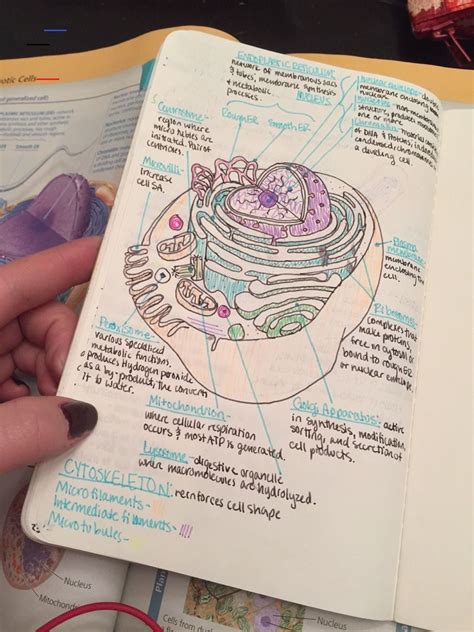 ENDOPLASMIC RETICULUM:
network of membranous sacs
& tubes; membrane synthesis
& metabolic
processes.
ROUGH ER
Smooth ER
NUCLEUS
membrane enclosing the
nucleus.
non-membranous
structure,
one or more
of DNA & Proteins;
a dividing cell.
Centrosome:
region where
micro tubules are
initiated. Pair of
centrioles.
Microvilli-
increase
cell SA.
Plasma
membrane:
membrane
enclosing the
cell.
Ribosomes:
complexes that
make proteins,
free in cytosol or
bound to rough ER
or nuclear envelope.
Peroxisome-
various specialised
metabolic functions,
produces Hydrogen peroxide
as a by-product, the convert
it to water.
Mitochondrion-
where cellular respiration
occurs & most ATP is generated.
Golgi Apparatus: active
in synthesis, modification
sorting, and secretion of
cell products.
Lysosome- digestive organelle
where macromolecules are hydrolyzed.
CYTOSKELETON: reinforces cell shape
Microfilaments-
Intermediate filaments-
Microtubules-
otic Cells
Nucleus
Mitochon
Cells from
Nucleus